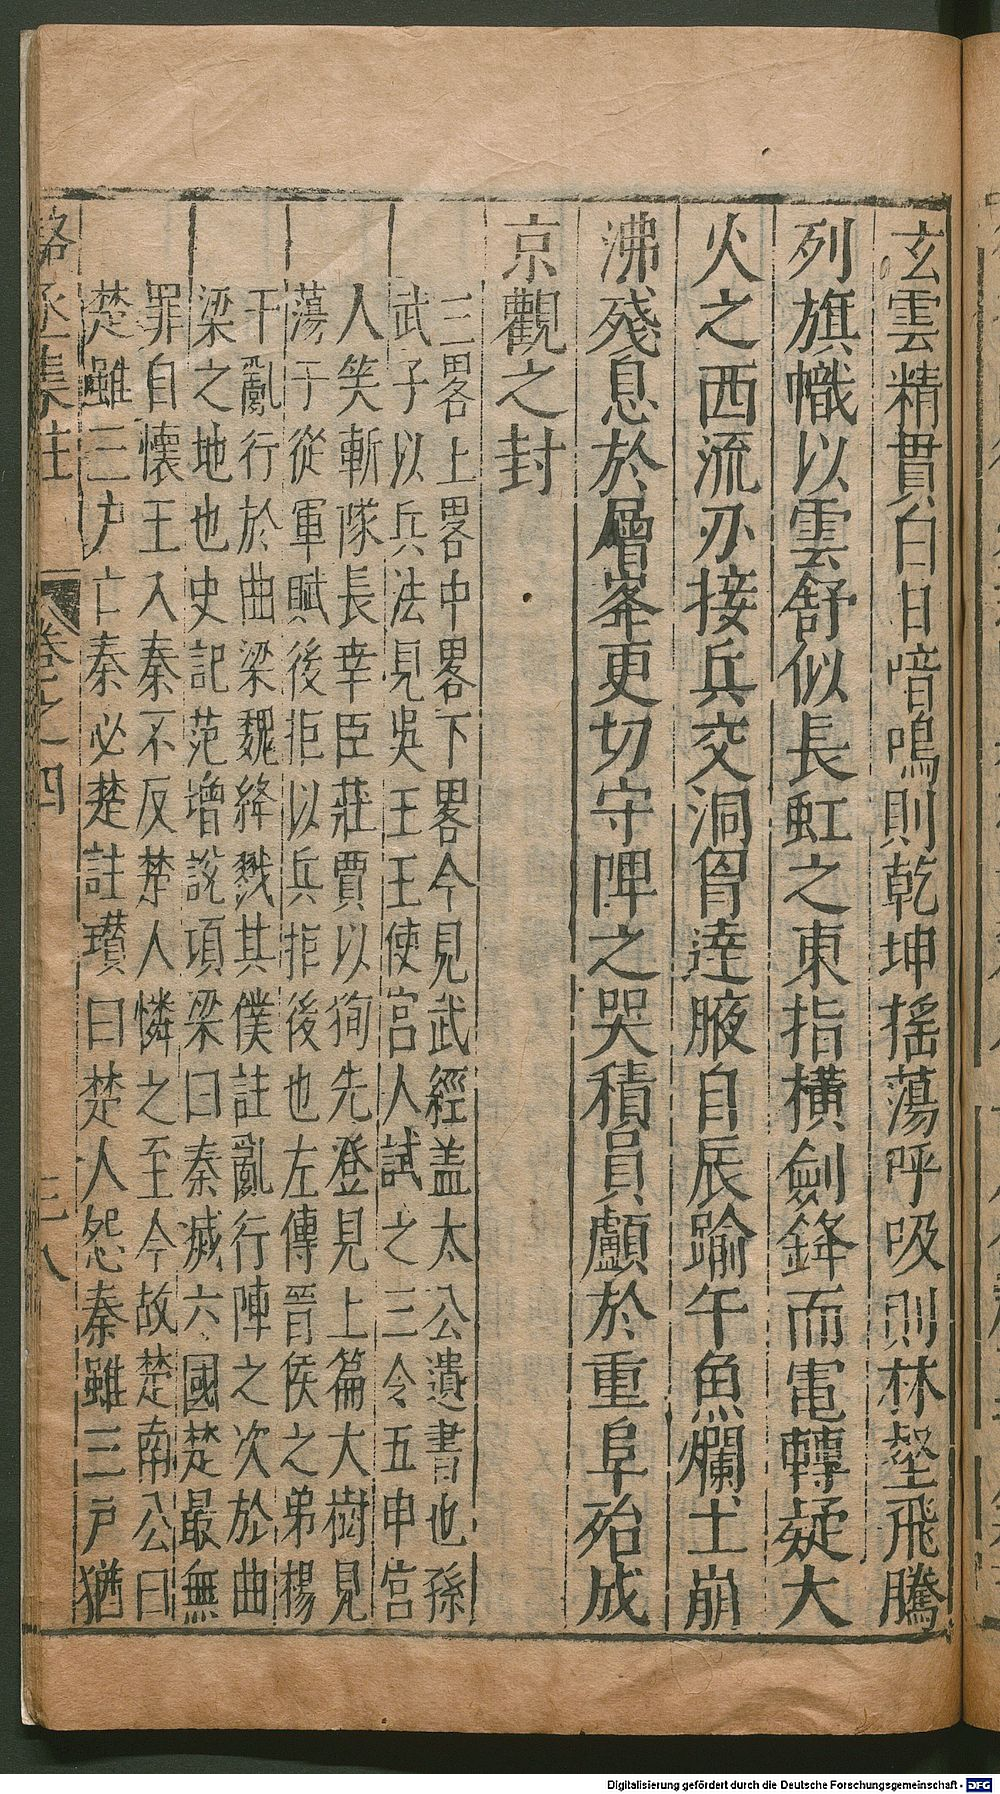 玄雲精貫白日喑鳴則乾坤搖蕩呼吸則林壑飛騰
列旗幟以雲舒似長虹之東指橫劍鋒而電轉疑大
火之西流刅接兵交洞胷達腋自辰踰午魚爛土崩
沸殘息於層峯更切守陴之哭積員顱於重阜殆成
京觀之封
三畧上畧中畧下畧今見武經盖太公遺書也孫
武子以兵法見吳王王使宮人試之三令五申宮
人笑斬隊長幸臣莊賈以狥先登見上篇大樹見
蕩于從軍賦後拒以兵拒後也左傳晉侯之弟楊
干亂行於曲梁魏絳戮其僕註亂行陣之次於曲
梁之地也史記范增說項梁曰秦滅六國楚最無
罪自懷王入秦不反楚人憐之至今故楚南公曰
楚雖三户亡秦必楚註瓚曰楚人怨秦雖三戸猶
駱丞集註 卷之四 三八
Digitalisierung gefördert durch die Deutsche Forschungsgemeinschaft - DFG